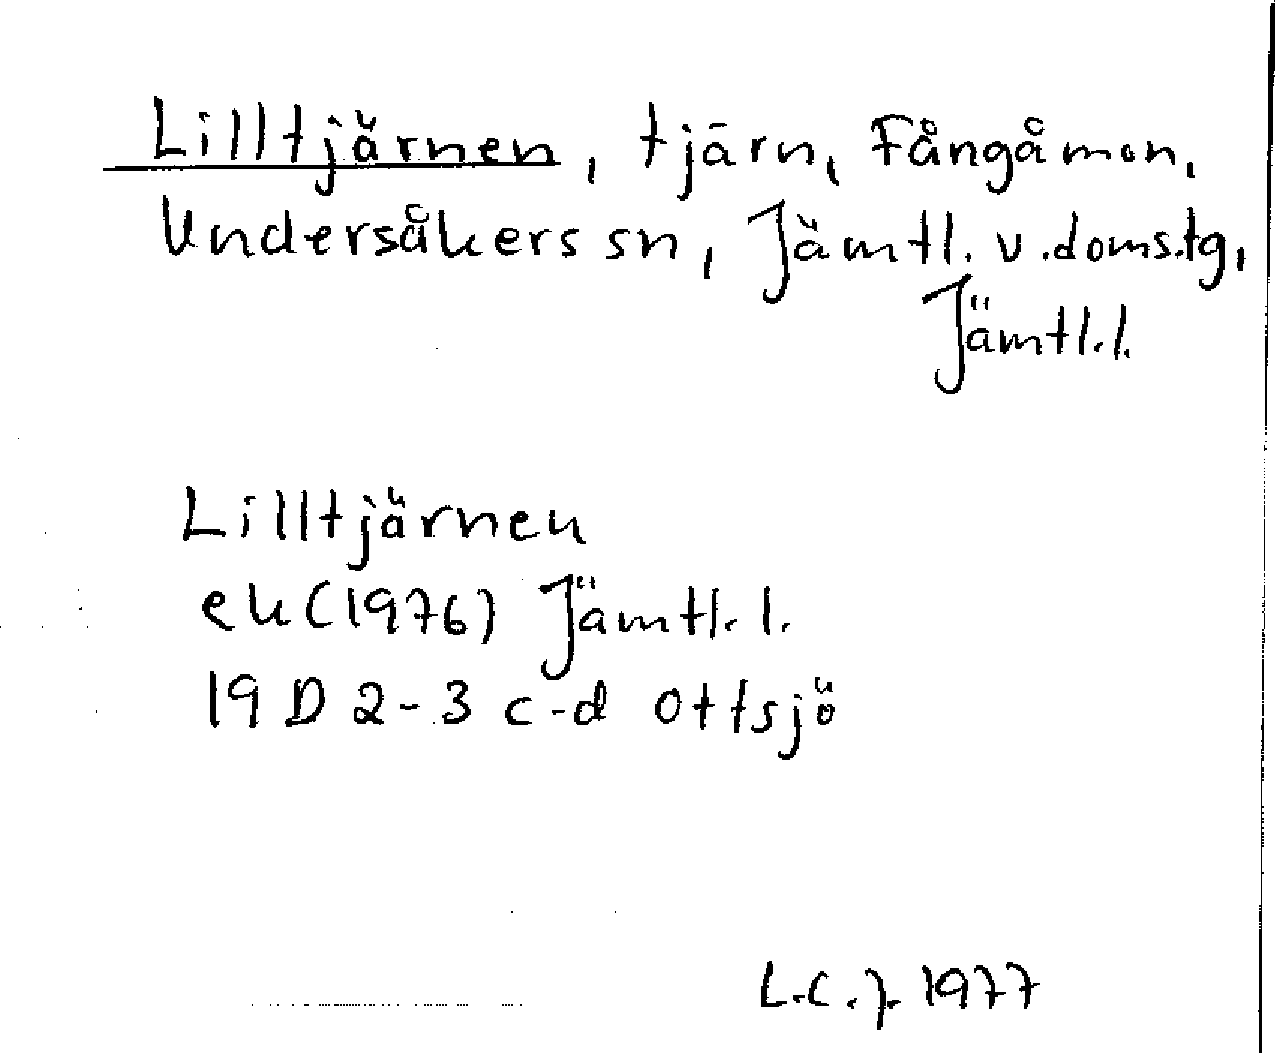 Lilltjärnen, tjärn, Fångåmon,
Undersåkers sn, Jämtl. v. doms.tg,
Jämtl.l.
Lilltjärnen
ek (1976) Jämtl. l.
19 D 2-3 c-d Ottsjö
L.C.J. 1977